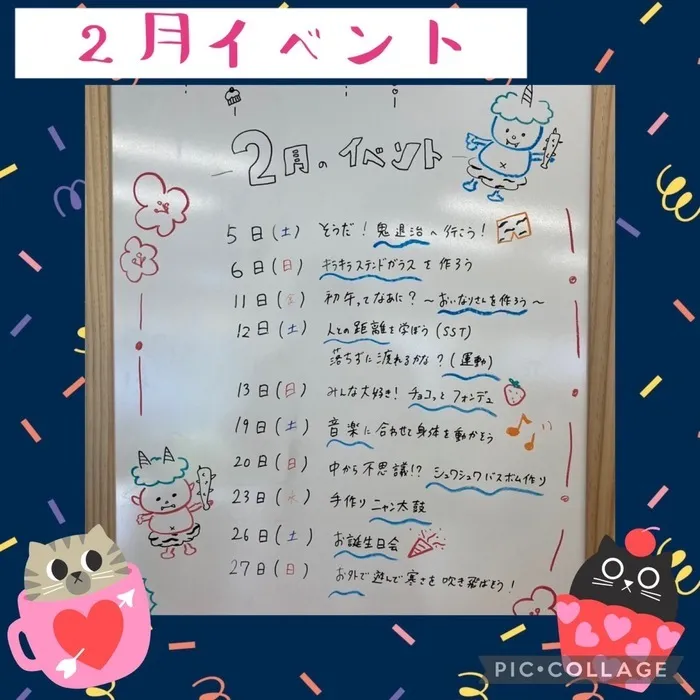 ２月イベント
2月のイベント
5日(土) そうだ！鬼退治へ行こう！
6日(日) キラキラステンドガラスを作ろう
11日(金) 初午ってなあに？～おいなりさんを作ろう～
12日(土) 人との距離を学ぼう(SST)
落ちずに渡れるかな？(運動)
13日(日) みんな大好き！チョコっとフォンデュ
19日(土) 音楽に合わせて身体を動かそう
20日(日) 中から不思議!? シュワシュワバスボム作り
23日(水) 手作りニャン太鼓
26日(土) お誕生日会
27日(日) お外で遊んで寒さを吹き飛ばそう！
PIC•COLLAGE